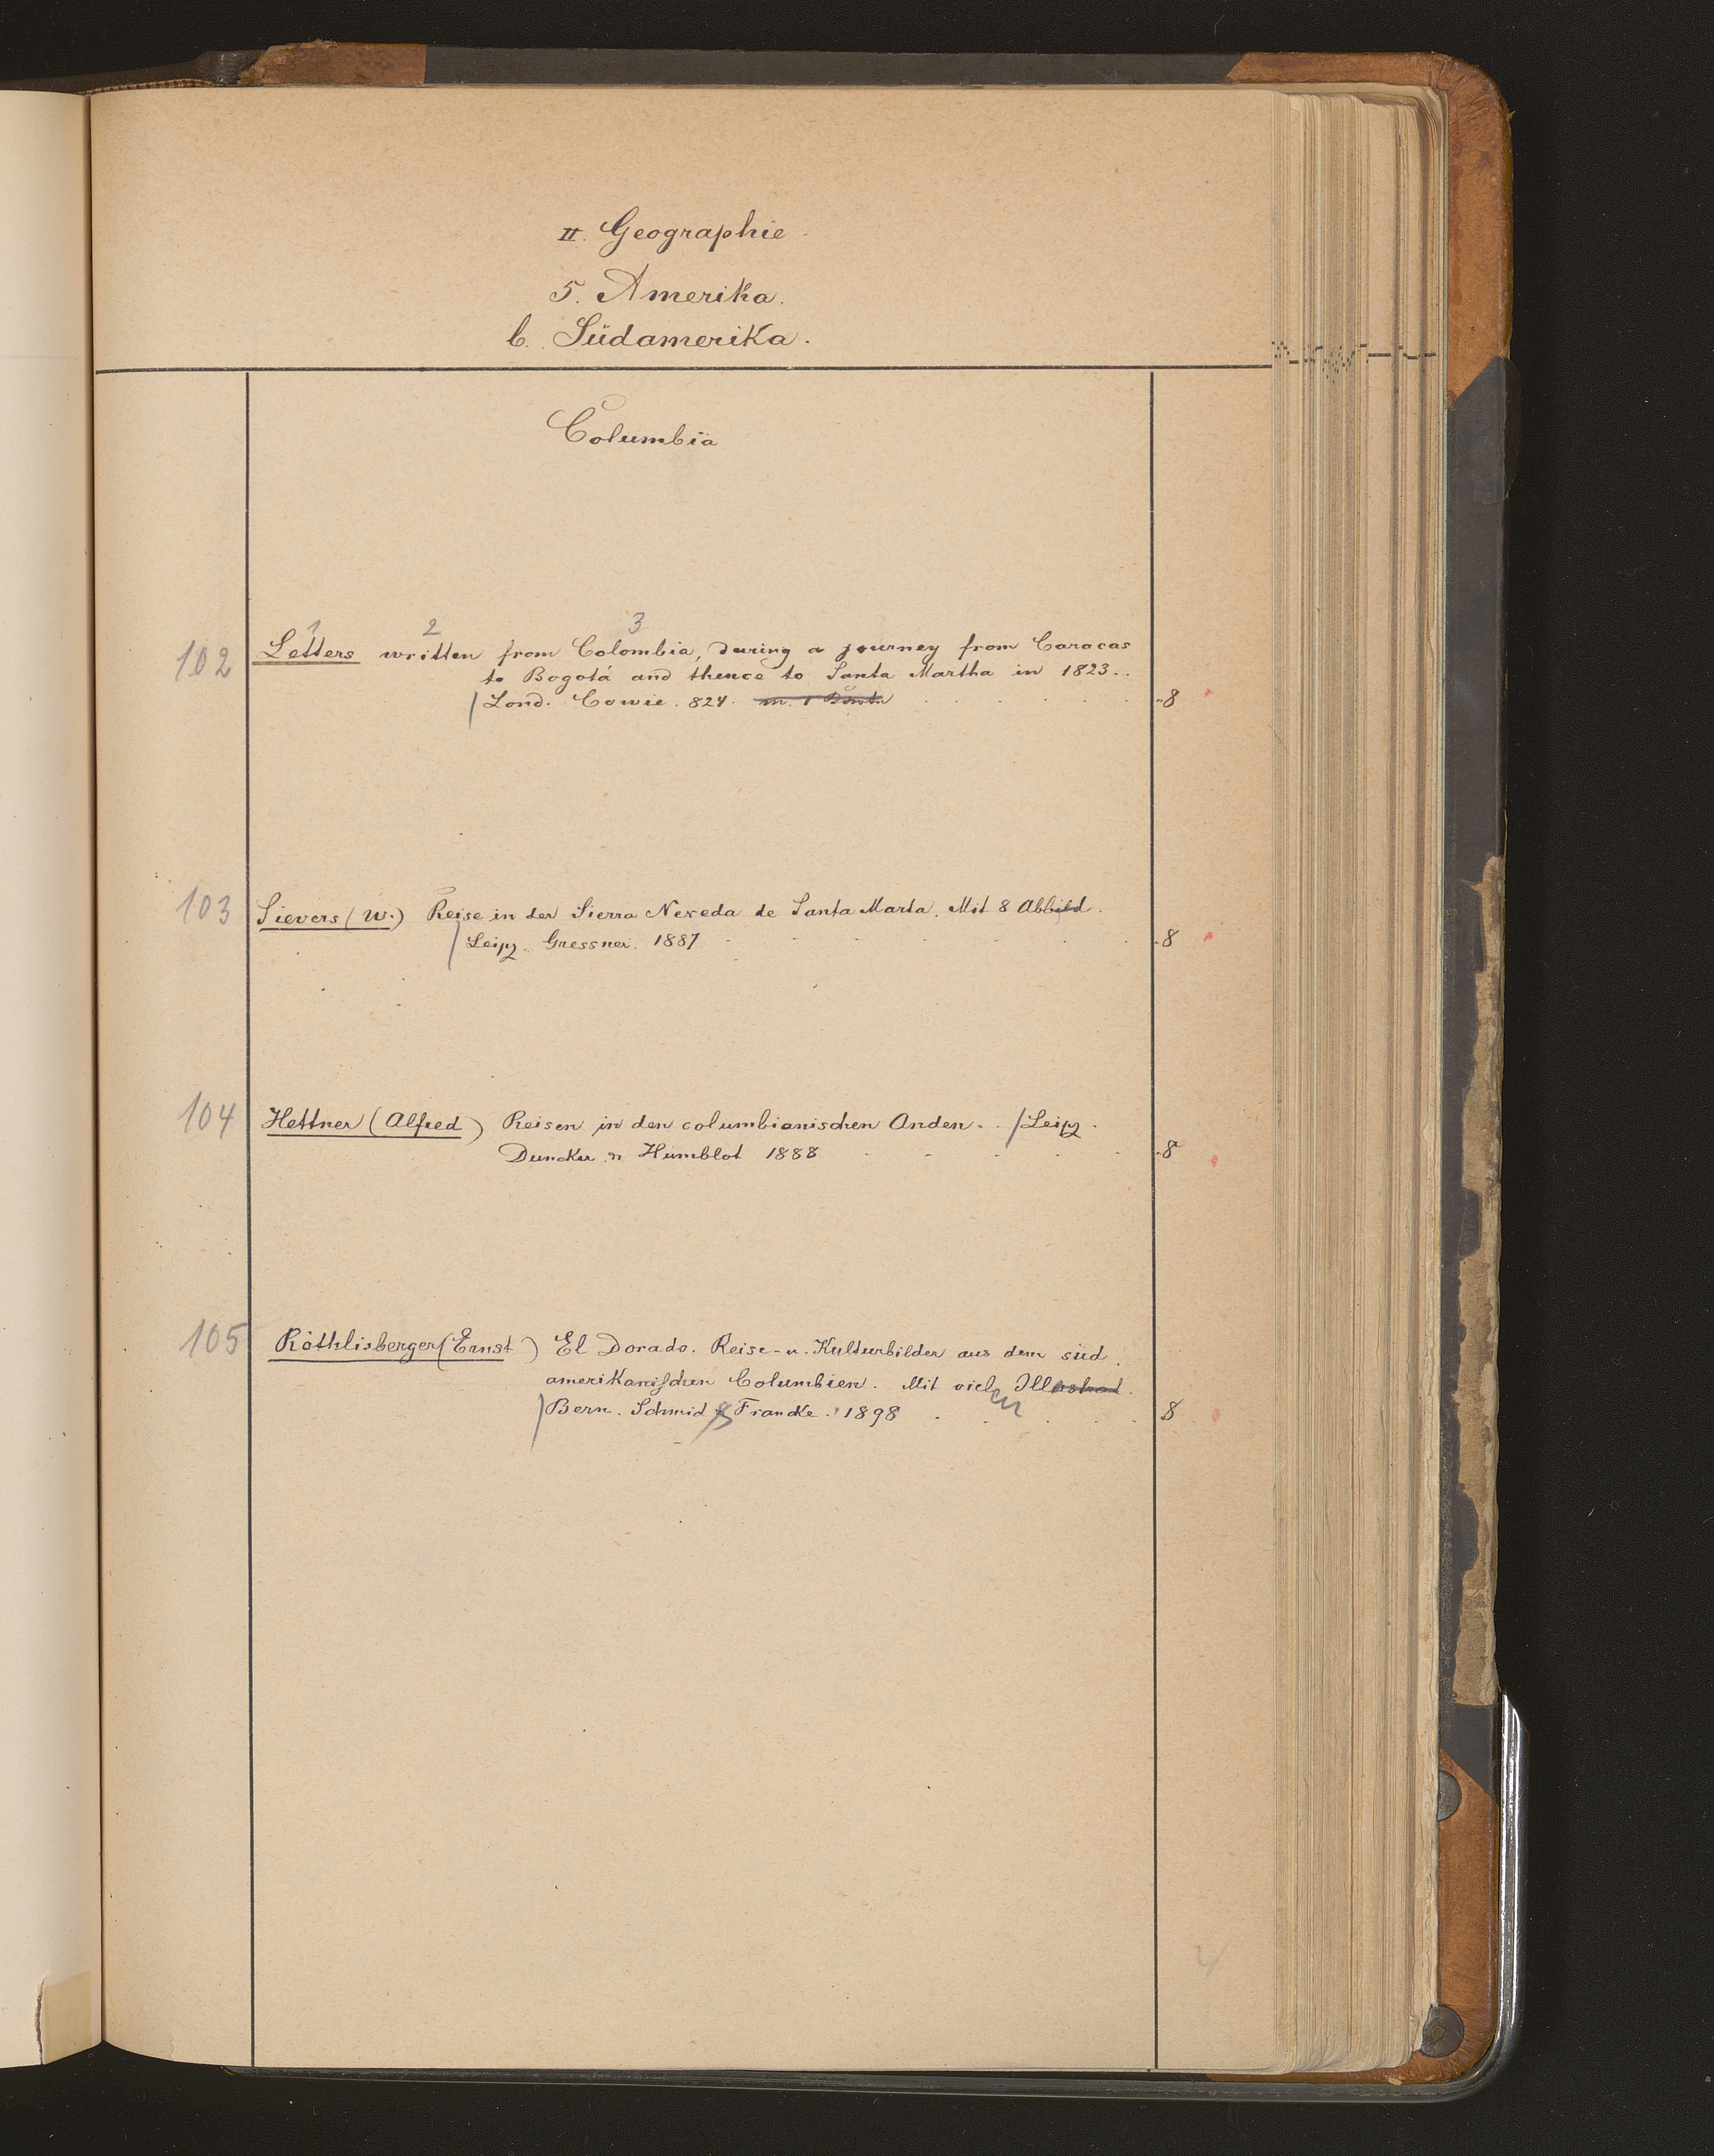 II. Geographie.
5. Amerika.
b. Südamerika.
Columbia
1 2 3
102 Letters written from Colombia, during a journey from Caracas
to Bogotá and thence to Santa Martha in 1823..
/ Lond. Cowie. 824. m. 1 8
103 Sievers (W.) Reise in der Sierra Neveda de Santa Marta. Mit 8 Abbild.
/ Leipz. Gressner. 1887 8
104 Hettner (Alfred) Reisen in den columbianischen Anden. . / Leipz.
Duncker u Humblot 1888 8
105 Röthlisberger (Ernst) El Dorado. Reise- u. Kulturbilder aus dem süd.
amerikanischen Columbien. Mit vielen Illustrat.
/ Bern. Schmid & Francke. 1898 8